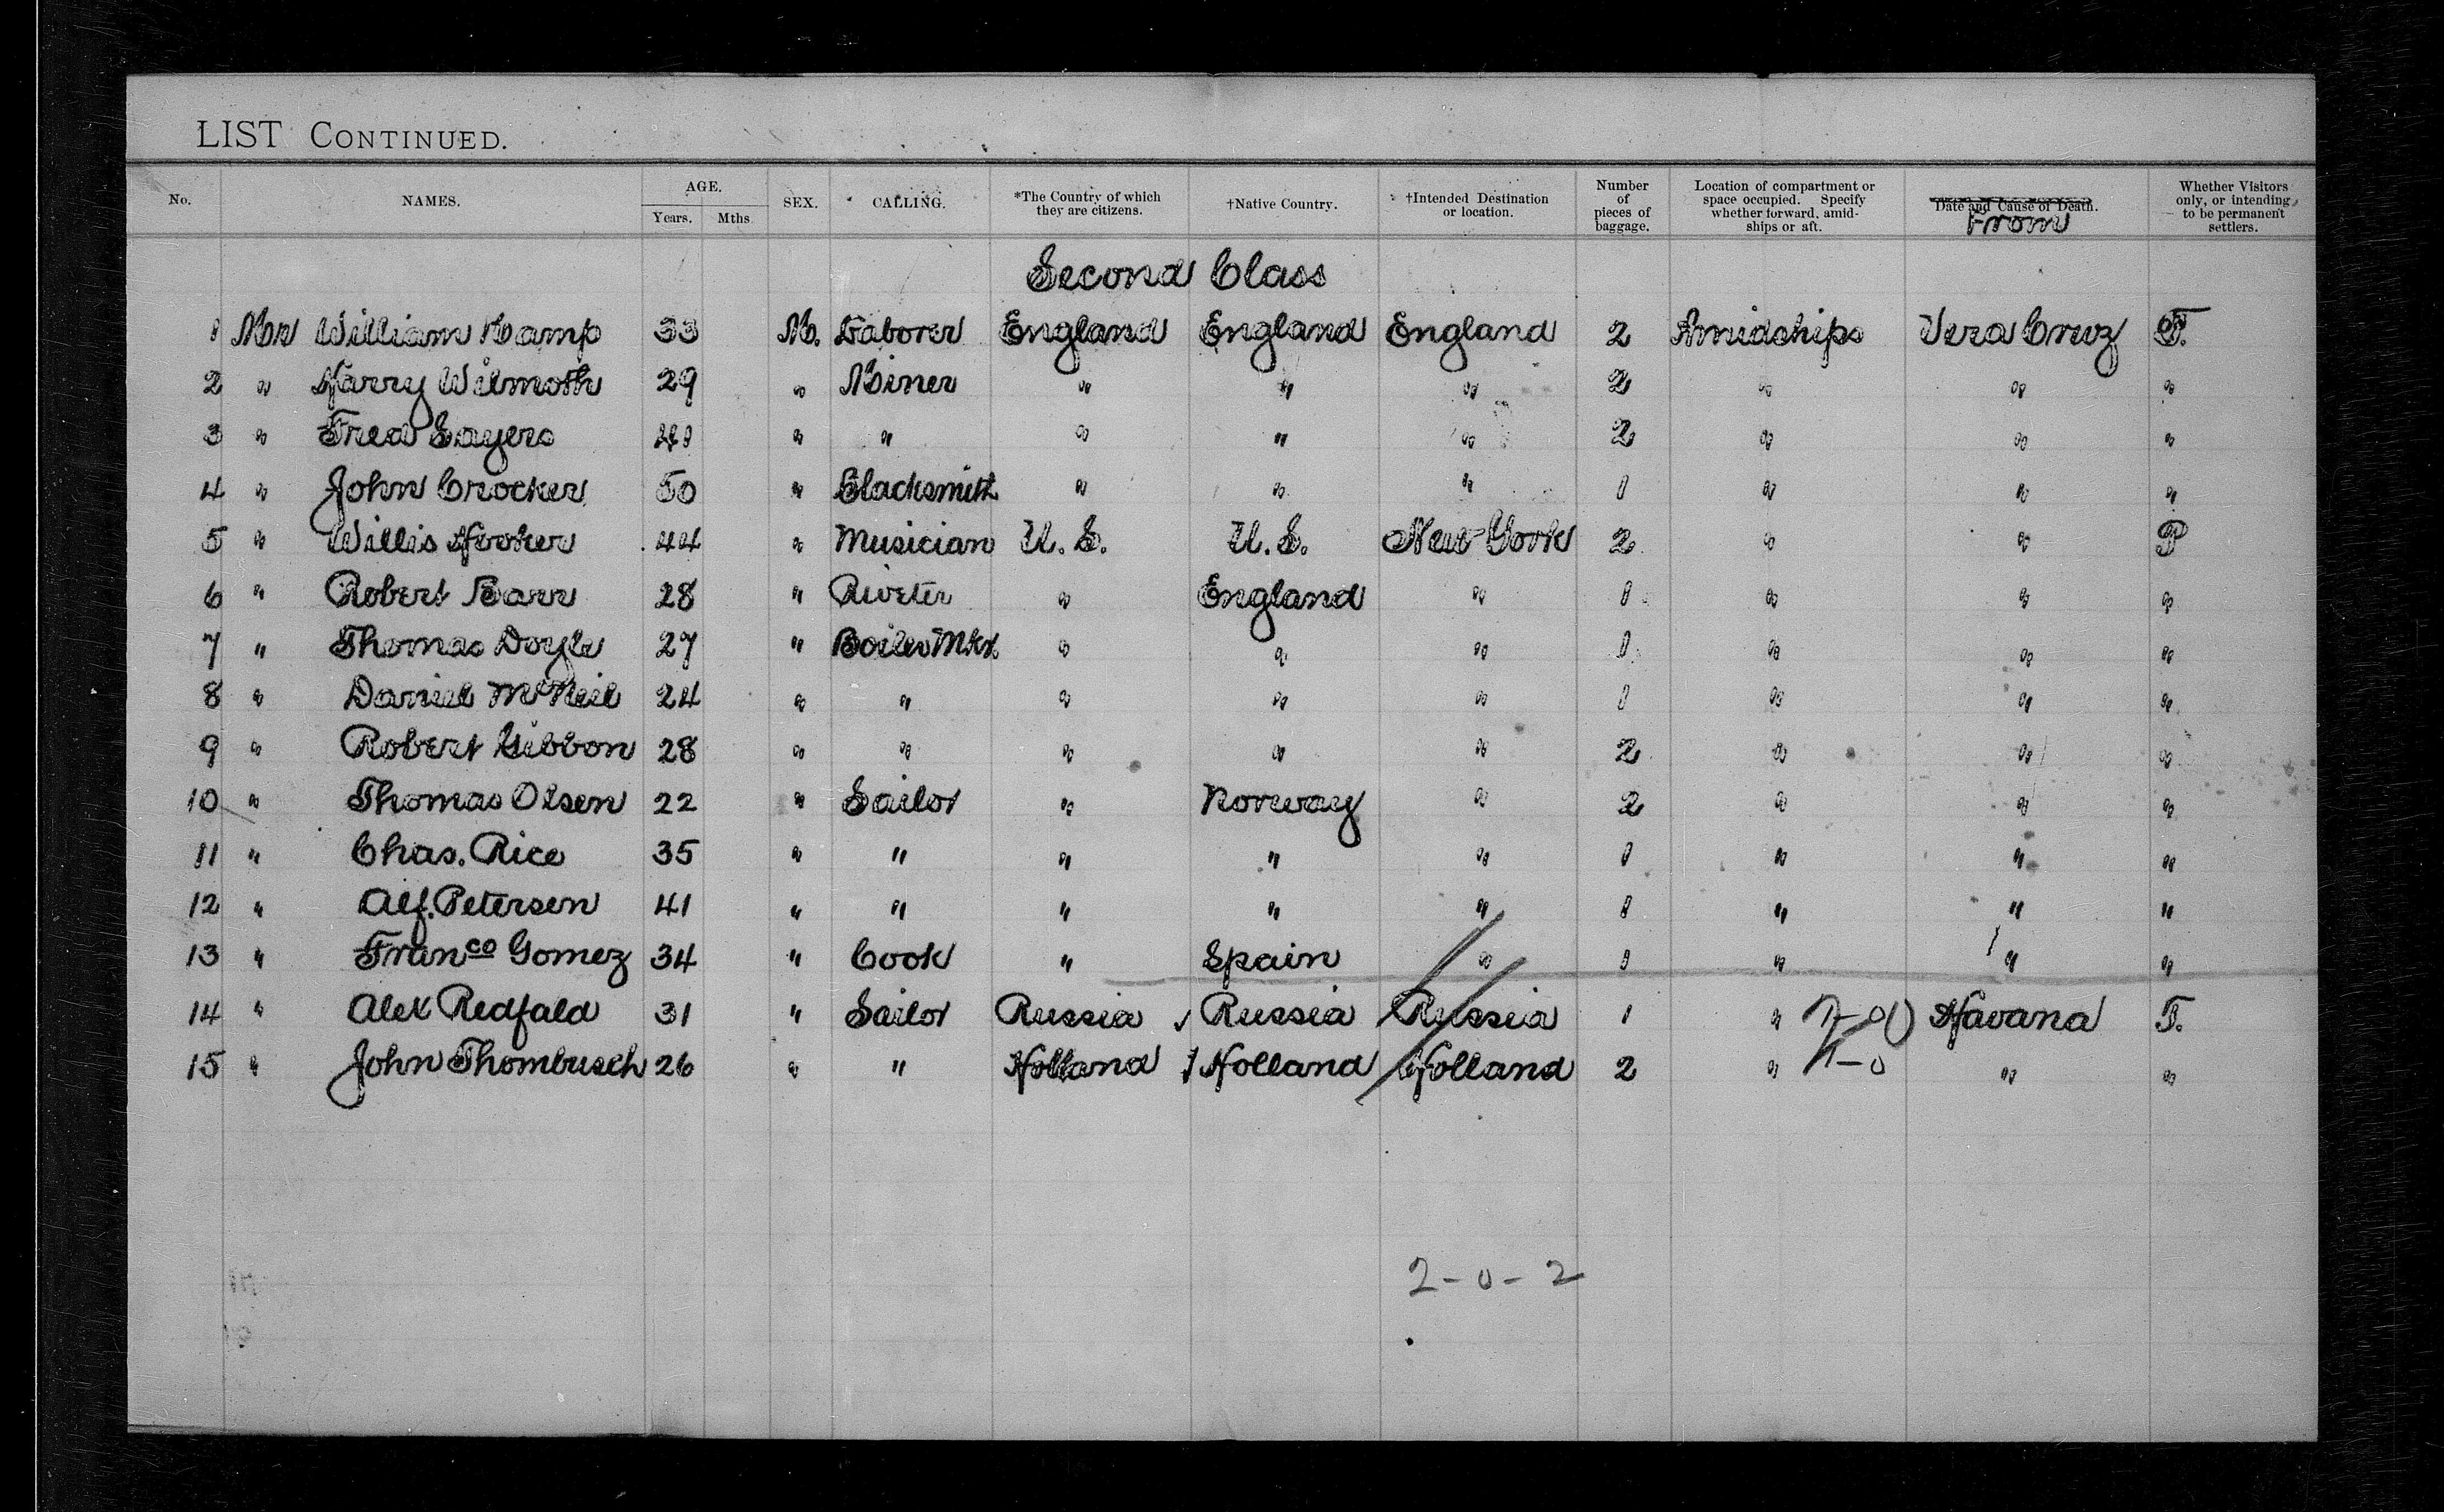 LIST CONTINUED.
No. NAMES. AGE. Years. Mths. SEX. CALLING. *The Country of which they are citizens. †Native Country. †Intended Destination or location. Number of pieces of baggage. Location of compartment or space occupied. Specify whether forward, amidships or aft. Date and Cause of Death. From Whether Visitors only, or intending to be permanent settlers.
Second Class
1 Mr William Kamp 33 M. Laborer England England England 2 Amidships Vera Cruz T.
2 " Harry Wilmoth 29 " Miner " " " 2 " " "
3 " Fred Sayers 41 " " " " " 2 " " "
4 " John Crocker 50 " Blacksmith " " " 1 " " "
5 " Willis Hooker 44 " Musician U.S. U.S. New York 2 " " P
6 " Robert Barr 28 " Riveter " England " 1 " " "
7 " Thomas Doyle 27 " Boiler Mkr. " " " 1 " " "
8 " Daniel McNeil 24 " " " " " 1 " " "
9 " Robert Gibbon 28 " " " " " 2 " " "
10 " Thomas Olsen 22 " Sailor " Norway " 2 " " "
11 " Chas. Rice 35 " " " " " 1 " " "
12 " Alf. Petersen 41 " " " " " 1 " " "
13 " Franco Gomez 34 " Cook " Spain " 1 " " "
14 " Alex Redfald 31 " Sailor Russia Russia Russia 1 " Havana T.
15 " John Thombusch 26 " " Holland Holland Holland 2 " " "
2-0-2